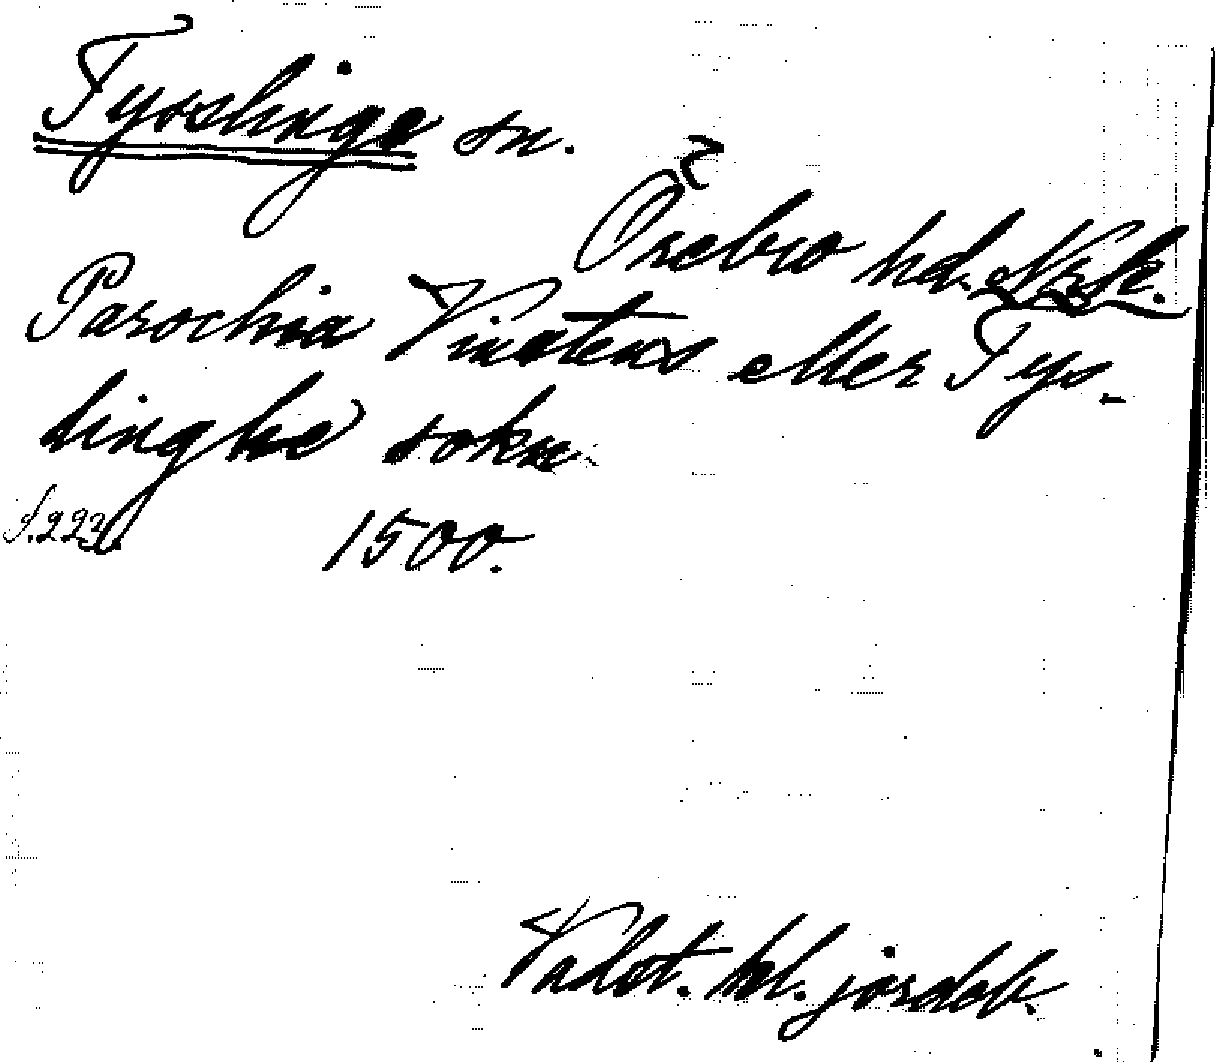 Tysslinge sn.
Örebro hd. Nrk.
Parochia Vinstens eller Tys-
linghe sokn
S. 223 1500.
Vadst. kl. jordeb.